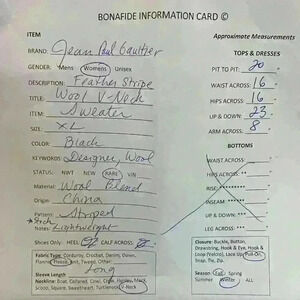 BONAFIDE INFORMATION CARD ©
ITEM
BRAND: Jean Paul Gaultier
GENDER: Mens Womens Unisex
DESCRIPTION: Feather Stripe
TITLE: Wool V-Neck
ITEM: Sweater
SIZE: XL
COLOR: Black
KEYWORDS: Designer, Wool
STATUS: NWT NEW RARE VIN
Material: Wool Blend
Origin: China
Pattern: Striped
Notes: Lightweight
Shoes Only: HEEL CALF ACROSS
Fabric Type: Corduroy, Crochet, Denim, Down,
Fleece, Knit, Tweed, Other
Sleeve Length Long
Neck: Boat, Collared, Cowl, Crew, Henley, Mock,
Scoop, Square, Sweetheart, Turtleneck, V-Neck
Approximate Measurements
TOPS & DRESSES
PIT TO PIT: 20
WAIST ACROSS: 16
HIPS ACROSS: 16
UP & DOWN: 23
ARM ACROSS: 8
BOTTOMS
WAIST ACROSS:
HIPS ACROSS
RISE:
INSEAM
UP & DOWN:
LEG ACROSS:
Closure: Buckle, Button,
Drawstring, Hook & Eye, Hook &
Loop (Velcro), Lace Up, Pull-On,
Snap, Tie, Zip
Season: Fall Spring
Summer Winter ALL